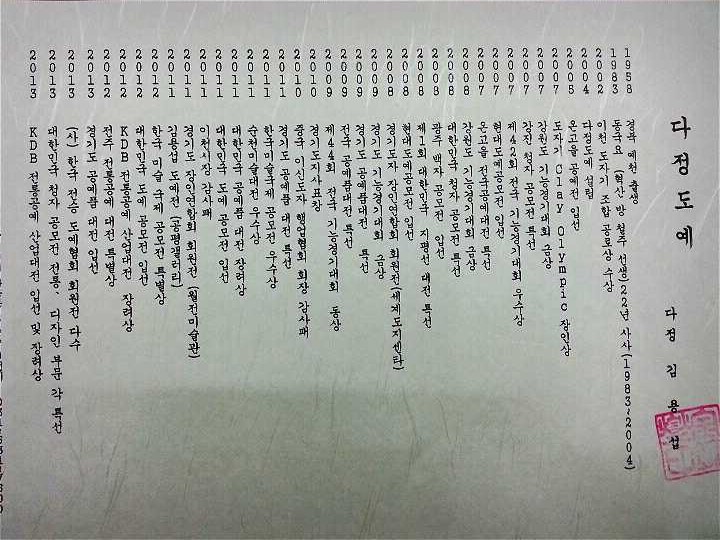 다정도예
다정 김용섭
1958 경북 예천 출생
1983 동국요 (혁산 방 철주 선생) 22년 사사 (1983~2004)
2002 이천 도자기 조합 공로상 수상
2004 다정도예 설립
2005 온고을 공예전 입선
2007 도자기 Clay Olympic 장인상
2007 강원도 기능경기대회 금상
2007 강진 청자 공모전 특선
2007 제42회 전국 기능경기대회 우수상
2007 현대도예공모전 입선
2007 온고을 전국공예대전 특선
2008 강원도 기능경기대회 금상
2008 대한민국 청자 공모전 특선
2008 광주 백자 공모전 입선
2008 제1회 대한민국 지평선 대전 특선
2008 현대도예공모전 입선
2008 경기도 장인연합회 회원전(세계도자센타)
2009 경기도 기능경기대회 금상
2009 경기도 공예품대전 특선
2009 전국 공예품대전 특선
2009 제44회 전국 기능경기대회 동상
2010 경기도지사표창
2010 중국 이신도자 행업협회 회장 감사패
2011 경기도 공예품 대전 특선
2011 한국미술국제 공모전 우수상
2011 순천미술대전 우수상
2011 대한민국 공예품 대전 장려상
2011 대한민국 도예 공모전 입선
2011 이천시장 감사패
2011 경기도 장인연합회 회원전 (월전미술관)
2011 김용섭 도예전 (공평갤러리)
2012 한국 미술 국제 공모전 특별상
2012 대한민국 도예 공모전 입선
2012 KDB 전통공예 산업대전 장려상
2012 전주 전통공예 대전 특별상
2013 경기도 공예품 대전 입선
2013 (사) 한국 전승 도예협회 회원전 다수
2013 대한민국 청자 공모전 전통, 디자인 부문 각 특선
2013 KDB 전통공예 산업대전 입선 및 장려상